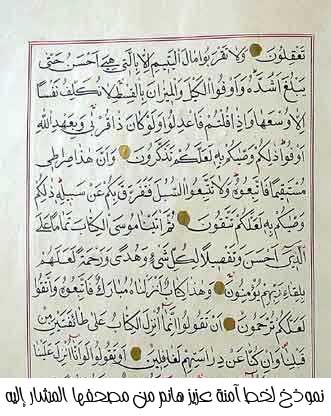 تَعْقِلُونَ وَلَا تَقْرَبُوا مَالَ الْيَتِيمِ إِلَّا بِالَّتِي هِيَ أَحْسَنُ حَتَّى
يَبْلُغَ أَشُدَّهُ وَأَوْفُوا الْكَيْلَ وَالْمِيزَانَ بِالْقِسْطِ لَا نُكَلِّفُ نَفْسًا
إِلَّا وُسْعَهَا وَإِذَا قُلْتُمْ فَاعْدِلُوا وَلَوْ كَانَ ذَا قُرْبَى وَبِعَهْدِ اللَّهِ
أَوْفُوا ذَلِكُمْ وَصَّيكُمْ بِهِ لَعَلَّكُمْ تَذَكَّرُونَ وَأَنَّ هَذَا صِرَاطِي
مُسْتَقِيمًا فَاتَّبِعُوهُ وَلَا تَتَّبِعُوا السُّبُلَ فَتَفَرَّقَ بِكُمْ عَنْ سَبِيلِهِ ذَلِكُمْ
وَصَّيكُمْ بِهِ لَعَلَّكُمْ تَتَّقُونَ ثُمَّ آتَيْنَا مُوسَى الْكِتَابَ تَمَامًا عَلَى
الَّذِي أَحْسَنَ وَتَفْصِيلًا لِكُلِّ شَيْءٍ وَهُدًى وَرَحْمَةً لَعَلَّهُمْ
بِلِقَاءِ رَبِّهِمْ يُؤْمِنُونَ وَهَذَا كِتَابٌ أَنْزَلْنَاهُ مُبَارَكٌ فَاتَّبِعُوهُ وَاتَّقُوا
لَعَلَّكُمْ تُرْحَمُونَ أَنْ تَقُولُوا إِنَّمَا أُنْزِلَ الْكِتَابُ عَلَى طَائِفَتَيْنِ مِنْ
قَبْلِنَا وَإِنْ كُنَّا عَنْ دِرَاسَتِهِمْ لَغَافِلِينَ أَوْ تَقُولُوا لَوْ أَنَّا أُنْزِلَ عَلَيْنَا
نموذج لخط آمنة عزيز هانم من مصحفها المشار إليه